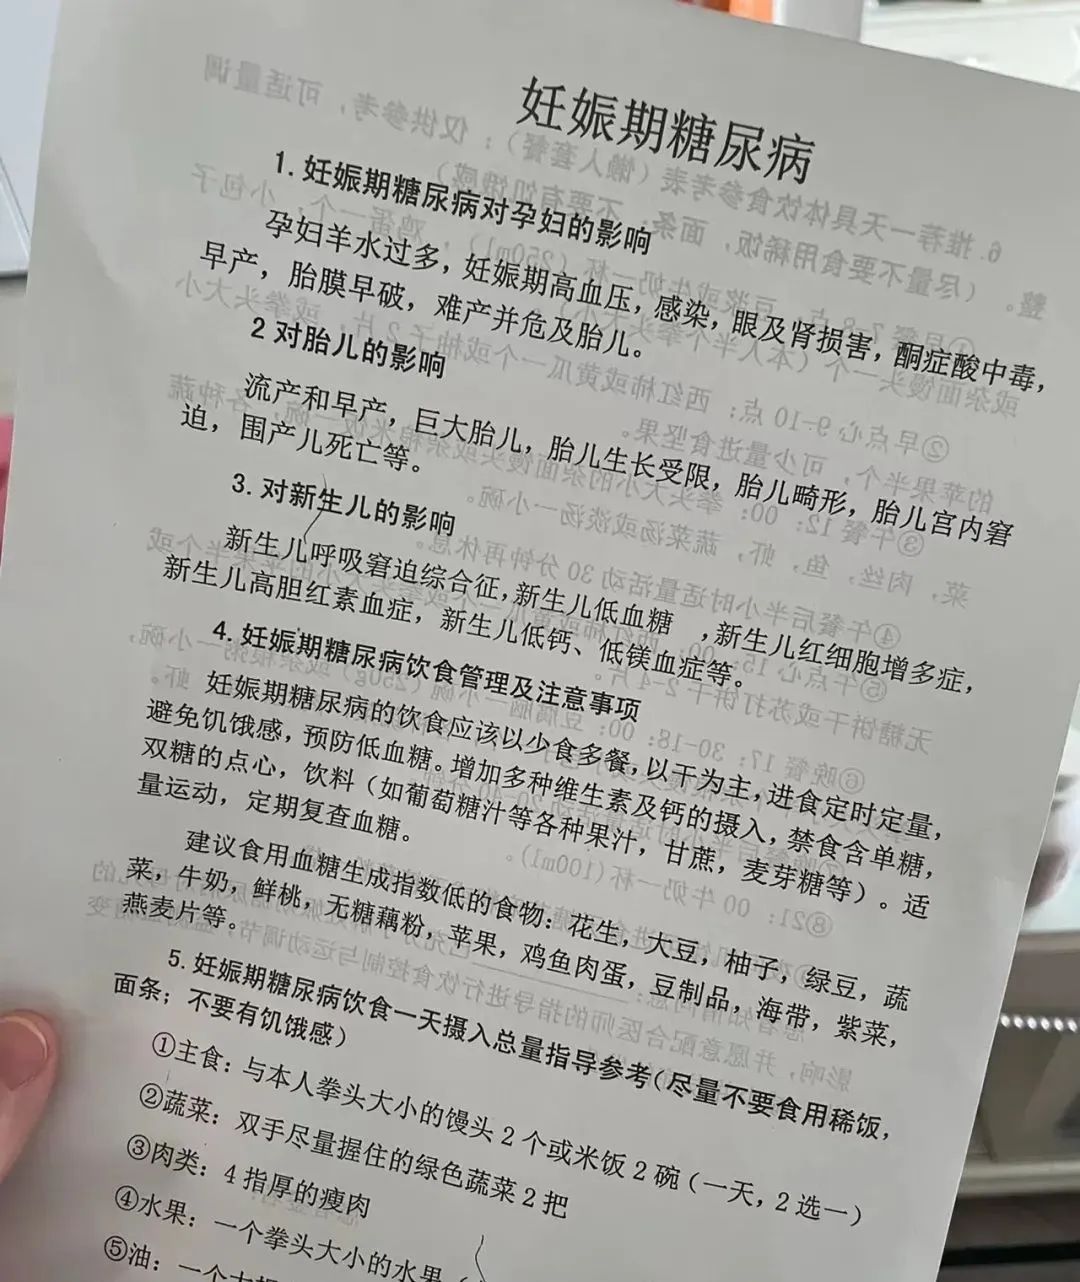 妊娠期糖尿病
1.妊娠期糖尿病对孕妇的影响
孕妇羊水过多，妊娠期高血压，感染，眼及肾损害，酮症酸中毒，
早产，胎膜早破，难产并危及胎儿。
2 对胎儿的影响
流产和早产，巨大胎儿，胎儿生长受限，胎儿畸形，胎儿宫内窘
迫，围产儿死亡等。
3.对新生儿的影响
新生儿呼吸窘迫综合征，新生儿低血糖 ，新生儿红细胞增多症，
新生儿高胆红素血症，新生儿低钙、低镁血症等。
4.妊娠期糖尿病饮食管理及注意事项
妊娠期糖尿病的饮食应该以少食多餐，以干为主，进食定时定量，
避免饥饿感，预防低血糖。增加多种维生素及钙的摄入，禁食含单糖，
双糖的点心，饮料（如葡萄糖汁等各种果汁，甘蔗，麦芽糖等）。适
量运动，定期复查血糖。
建议食用血糖生成指数低的食物：花生，大豆，柚子，绿豆，蔬
菜，牛奶，鲜桃，无糖藕粉，苹果，鸡鱼肉蛋，豆制品，海带，紫菜，
燕麦片等。
5.妊娠期糖尿病饮食一天摄入总量指导参考（尽量不要食用稀饭，
面条；不要有饥饿感）
①主食：与本人拳头大小的馒头 2 个或米饭 2 碗（一天，2 选一）
②蔬菜：双手尽量握住的绿色蔬菜 2 把
③肉类：4 指厚的瘦肉
④水果：一个拳头大小的水果（
⑤油：一个大